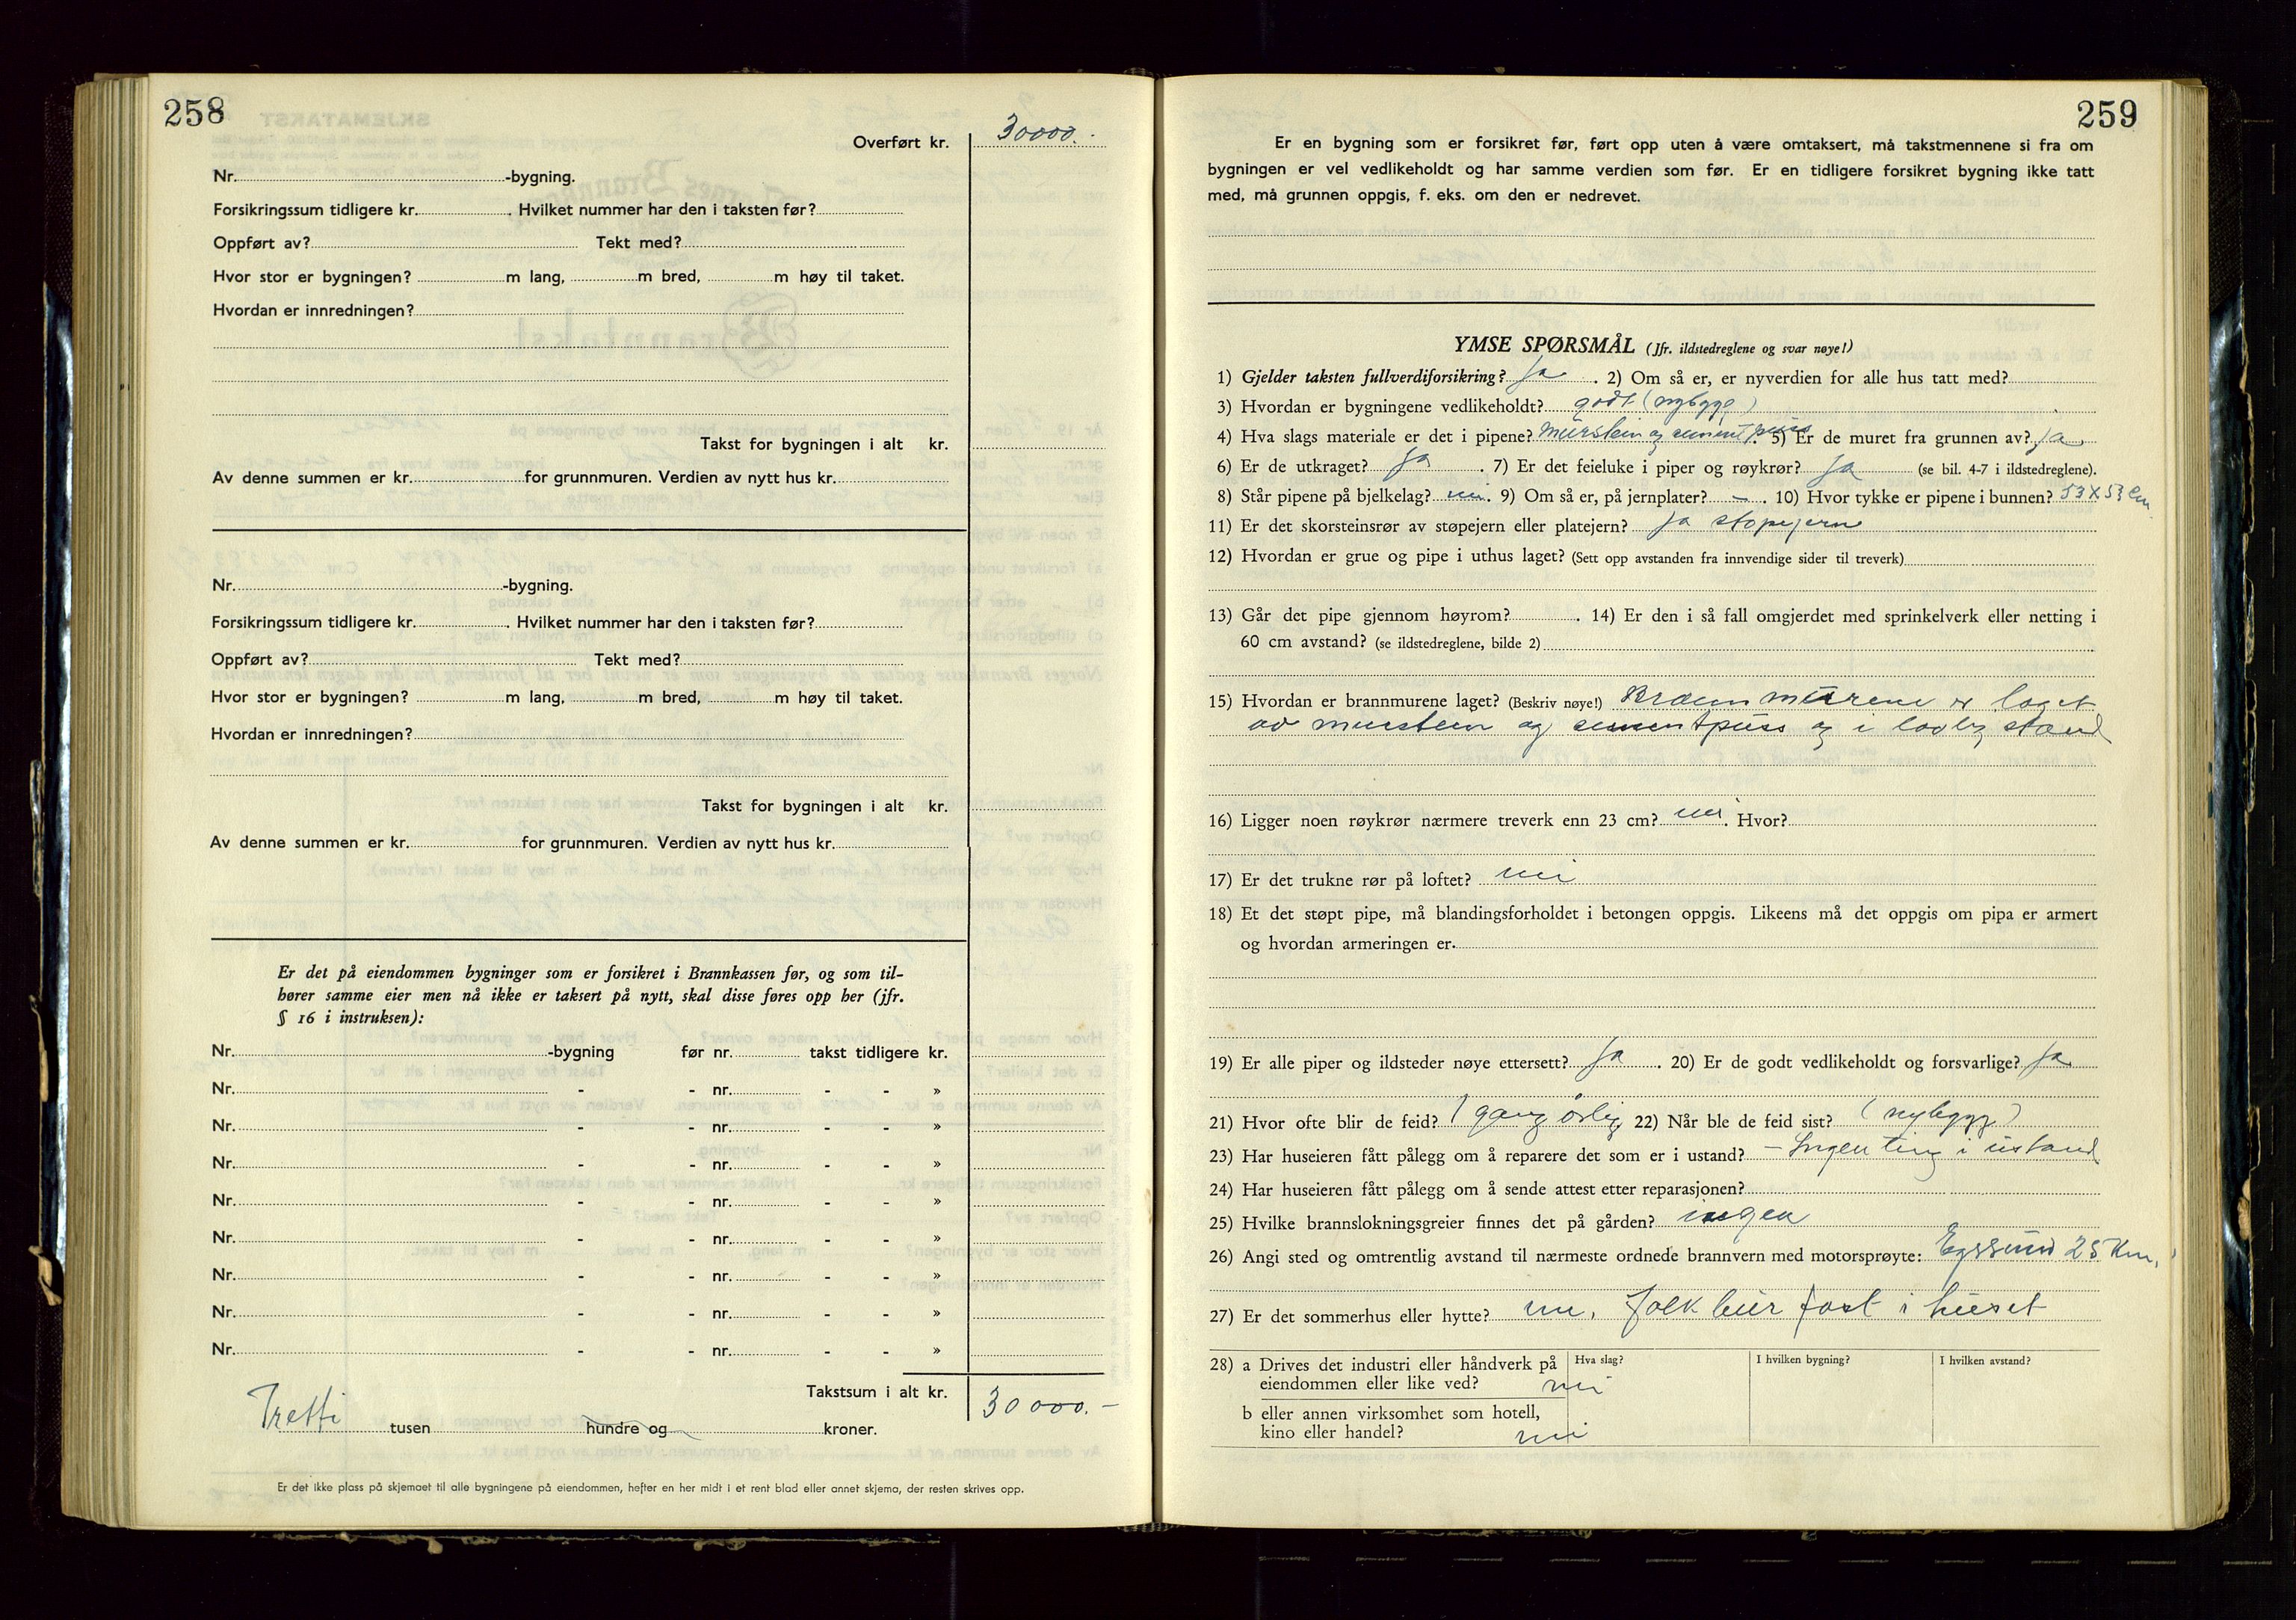 258
Overført kr. 30000.
Nr. -bygning.
Forsikringssum tidligere kr. . Hvilket nummer har den i taksten før?
Oppført av? Tekt med?
Hvor stor er bygningen? m lang, m bred, m høy til taket.
Hvordan er innredningen?
Takst for bygningen i alt kr.
Av denne summen er kr. for grunnmuren. Verdien av nytt hus kr.
Nr. -bygning.
Forsikringssum tidligere kr. . Hvilket nummer har den i taksten før?
Oppført av? Tekt med?
Hvor stor er bygningen? m lang, m bred, m høy til taket.
Hvordan er innredningen?
Takst for bygningen i alt kr.
Av denne summen er kr. for grunnmuren. Verdien av nytt hus kr.
Er det på eiendommen bygninger som er forsikret i Brannkassen før, og som til-
hører samme eier men nå ikke er taksert på nytt, skal disse føres opp her (jfr.
§ 16 i instruksen):
Nr. -bygning før nr. takst tidligere kr.
Nr. - - nr. - - »
Nr. - - nr. - - »
Nr. - - nr. - - »
Nr. - - nr. - - »
Nr. - - nr. - - »
Nr. - - nr. - - »
Nr. - - nr. - - »
Nr. - - nr. - - »
Takstsum i alt kr. 30000.-
Tretti tusen hundre og kroner.
Er det ikke plass på skjemaet til alle bygningene på eiendommen, hefter en her midt i et rent blad eller annet skjema, der resten skrives opp.
259
Er en bygning som er forsikret før, ført opp uten å være omtaksert, må takstmennene si fra om
bygningen er vel vedlikeholdt og har samme verdien som før. Er en tidligere forsikret bygning ikke tatt
med, må grunnen oppgis, f. eks. om den er nedrevet.
YMSE SPØRSMÅL (Jfr. ildstedreglene og svar nøye!)
1) Gjelder taksten fullverdiforsikring? Ja . 2) Om så er, er nyverdien for alle hus tatt med?
3) Hvordan er bygningene vedlikeholdt? godt (nybygg)
4) Hva slags materiale er det i pipene? Murstein og sement puss . 5) Er de muret fra grunnen av? ja
6) Er de utkraget? Ja . 7) Er det feieluke i piper og røykrør? Ja (se bil. 4-7 i ildstedreglene).
8) Står pipene på bjelkelag? nei. 9) Om så er, på jernplater? - . 10) Hvor tykke er pipene i bunnen? 53 X 53 cm
11) Er det skorsteinsrør av støpejern eller platejern? Ja støpejern
12) Hvordan er grue og pipe i uthus laget? (Sett opp avstanden fra innvendige sider til treverk)
13) Går det pipe gjennom høyrom? . 14) Er den i så fall omgjerdet med sprinkelverk eller netting i
60 cm avstand? (se ildstedreglene, bilde 2)
15) Hvordan er brannmurene laget? (Beskriv nøye!) Brannmurene er laget
av murstein og sementpuss og i lovlig stand
16) Ligger noen røykrør nærmere treverk enn 23 cm? nei. Hvor?
17) Er det trukne rør på loftet? nei
18) Et det støpt pipe, må blandingsforholdet i betongen oppgis. Likeens må det oppgis om pipa er armert
og hvordan armeringen er.
19) Er alle piper og ildsteder nøye ettersett? Ja . 20) Er de godt vedlikeholdt og forsvarlige? Ja
21) Hvor ofte blir de feid? 1 gang årlig 22) Når ble de feid sist? (nybygg)
23) Har huseieren fått pålegg om å reparere det som er i ustand? - Ingen ting i ustand
24) Har huseieren fått pålegg om å sende attest etter reparasjonen?
25) Hvilke brannslokningsgreier finnes det på gården? ingen
26) Angi sted og omtrentlig avstand til nærmeste ordnede brannvern med motorsprøyte: Egersund 25 Km.
27) Er det sommerhus eller hytte? nei. Folk buer fast i huset
28) a Drives det industri eller håndverk på Hva slag? I hvilken bygning? I hvilken avstand?
eiendommen eller like ved? nei
b eller annen virksomhet som hotell,
kino eller handel? nei